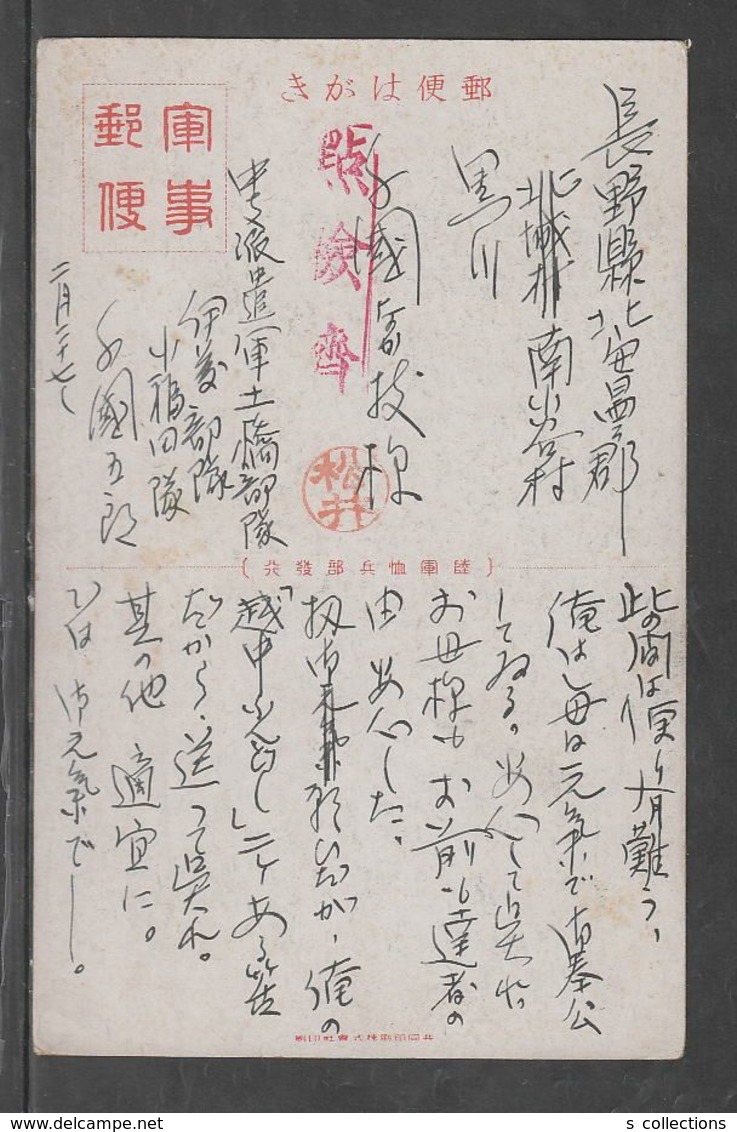 郵便はがき
軍事
郵便
點檢齊
松井
長野縣北安曇郡
北城村南小谷村
黒川
千國
様
中支派遣軍土橋部隊
伊藤部隊
小福田隊
千國五郎
二月二十七日
(陸軍恤兵部發行)
此の間は便り有難う、
俺は毎日元気で御奉公
してゐる。安心して呉れ。
お母様もお前も達者の
由安心した、
扨
願ひだが、俺の
「越中ふどし」二ケある筈
だから、送って呉れ。
其の他適宜に。
では御元氣で。
共同印刷株式會社印刷
s collections